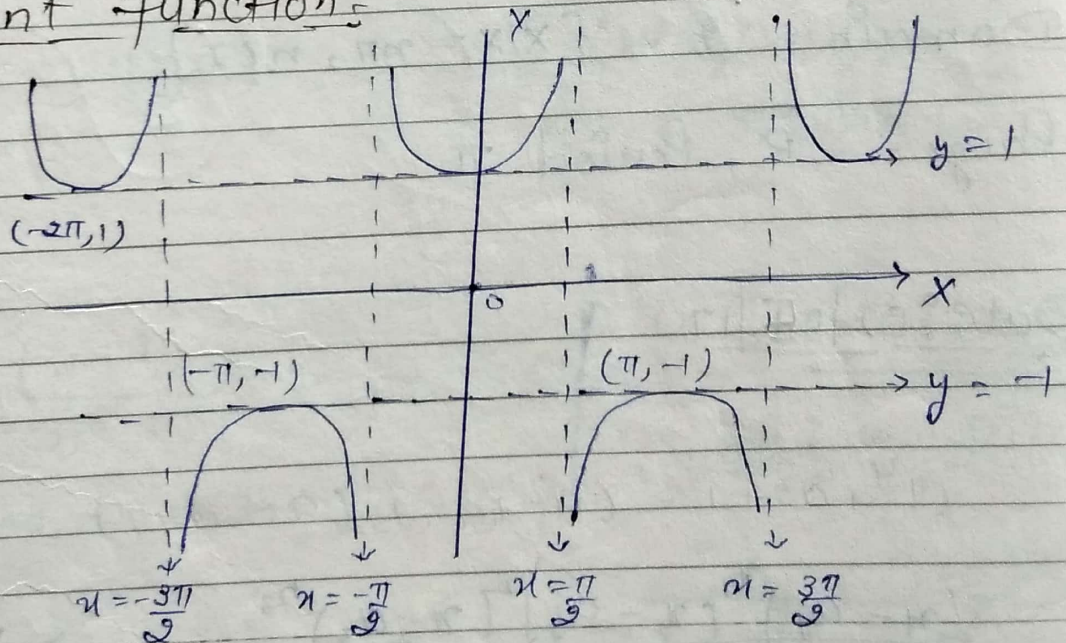 nt function:
Y
y = 1
(-2π, 1)
0
X
(-π, -1)
(π, -1)
y = -1
x = -3π/2
x = -π/2
x = π/2
x = 3π/2